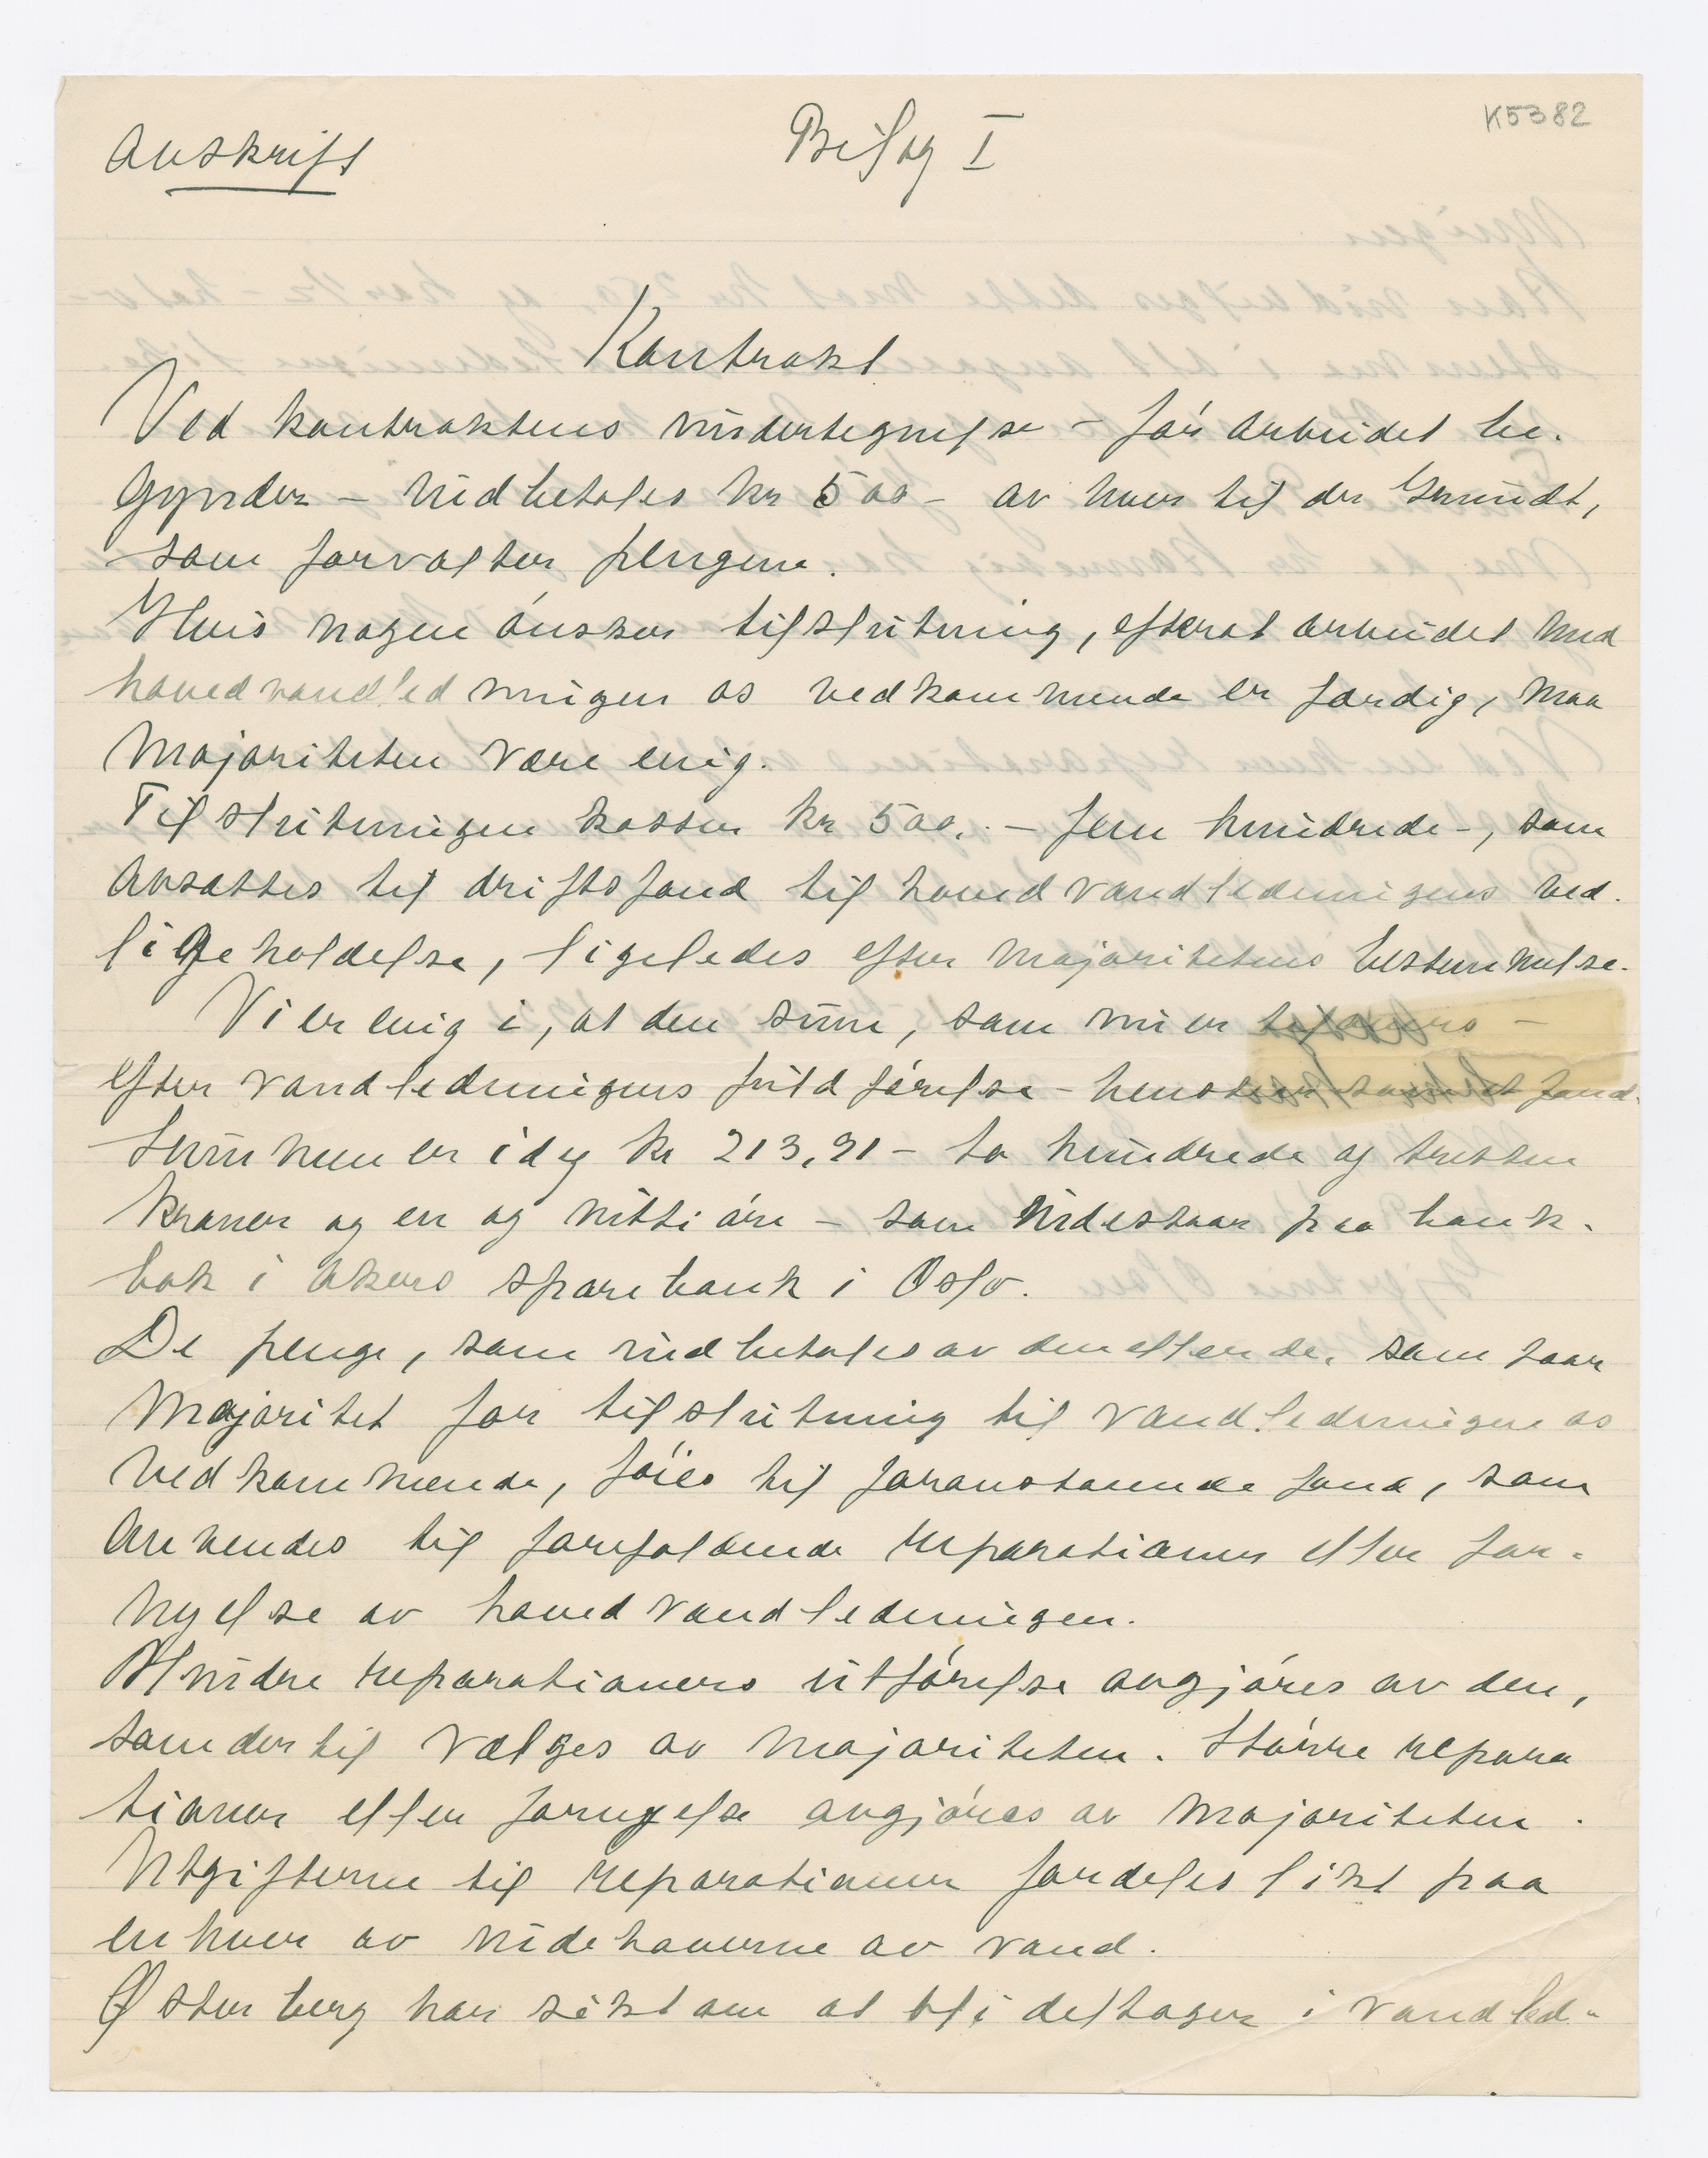 K5382
Avskrift
Bilag I
Kontrakt
Ved kontraktens undertegnelse - før arbeidet be-
gynder - indbetales kr 500 - av hver til dr Grundt,
som forvalter pengene.
Hvis nogen ønsker tilslutning, efterat arbeidet med
hovedvandledningen os vedkommende er færdig, maa
majoriteten være enig.
Tilslutningen koster kr 500. - fem hundrede -, som
avsættes til driftsfond til hovedvandledningens ved-
ligeholdelse, ligeledes efter majoritetens bestemmelse.
Vi er enig i, at den sum, som nu er tilovers -
efter vandledningens fuldførelse - henstaar som et fond.
Summen er idag kr 213,91 - to hundrede og tretten
kroner og en og nitti øre - som indestaar paa bank-
bok i Akers sparebank i Oslo.
De penge, som indbetales av den eller de, som faar
majoritet for tilslutning til vandledningen os
vedkommende, føies til foranstaaende fond, som
anvendes til forefaldende reparationer eller for-
nyelse av hovedvandledningen.
Mindre reparationers utførelse avgjøres av den,
som dertil vælges av majoriteten. Større repara
tioner eller fornyelse avgjøres av majoriteten.
Utgifterne til reparationer fordeles likt paa
enhver av indehaverne av vand.
Østerberg har søkt om at bli deltager i vandled-